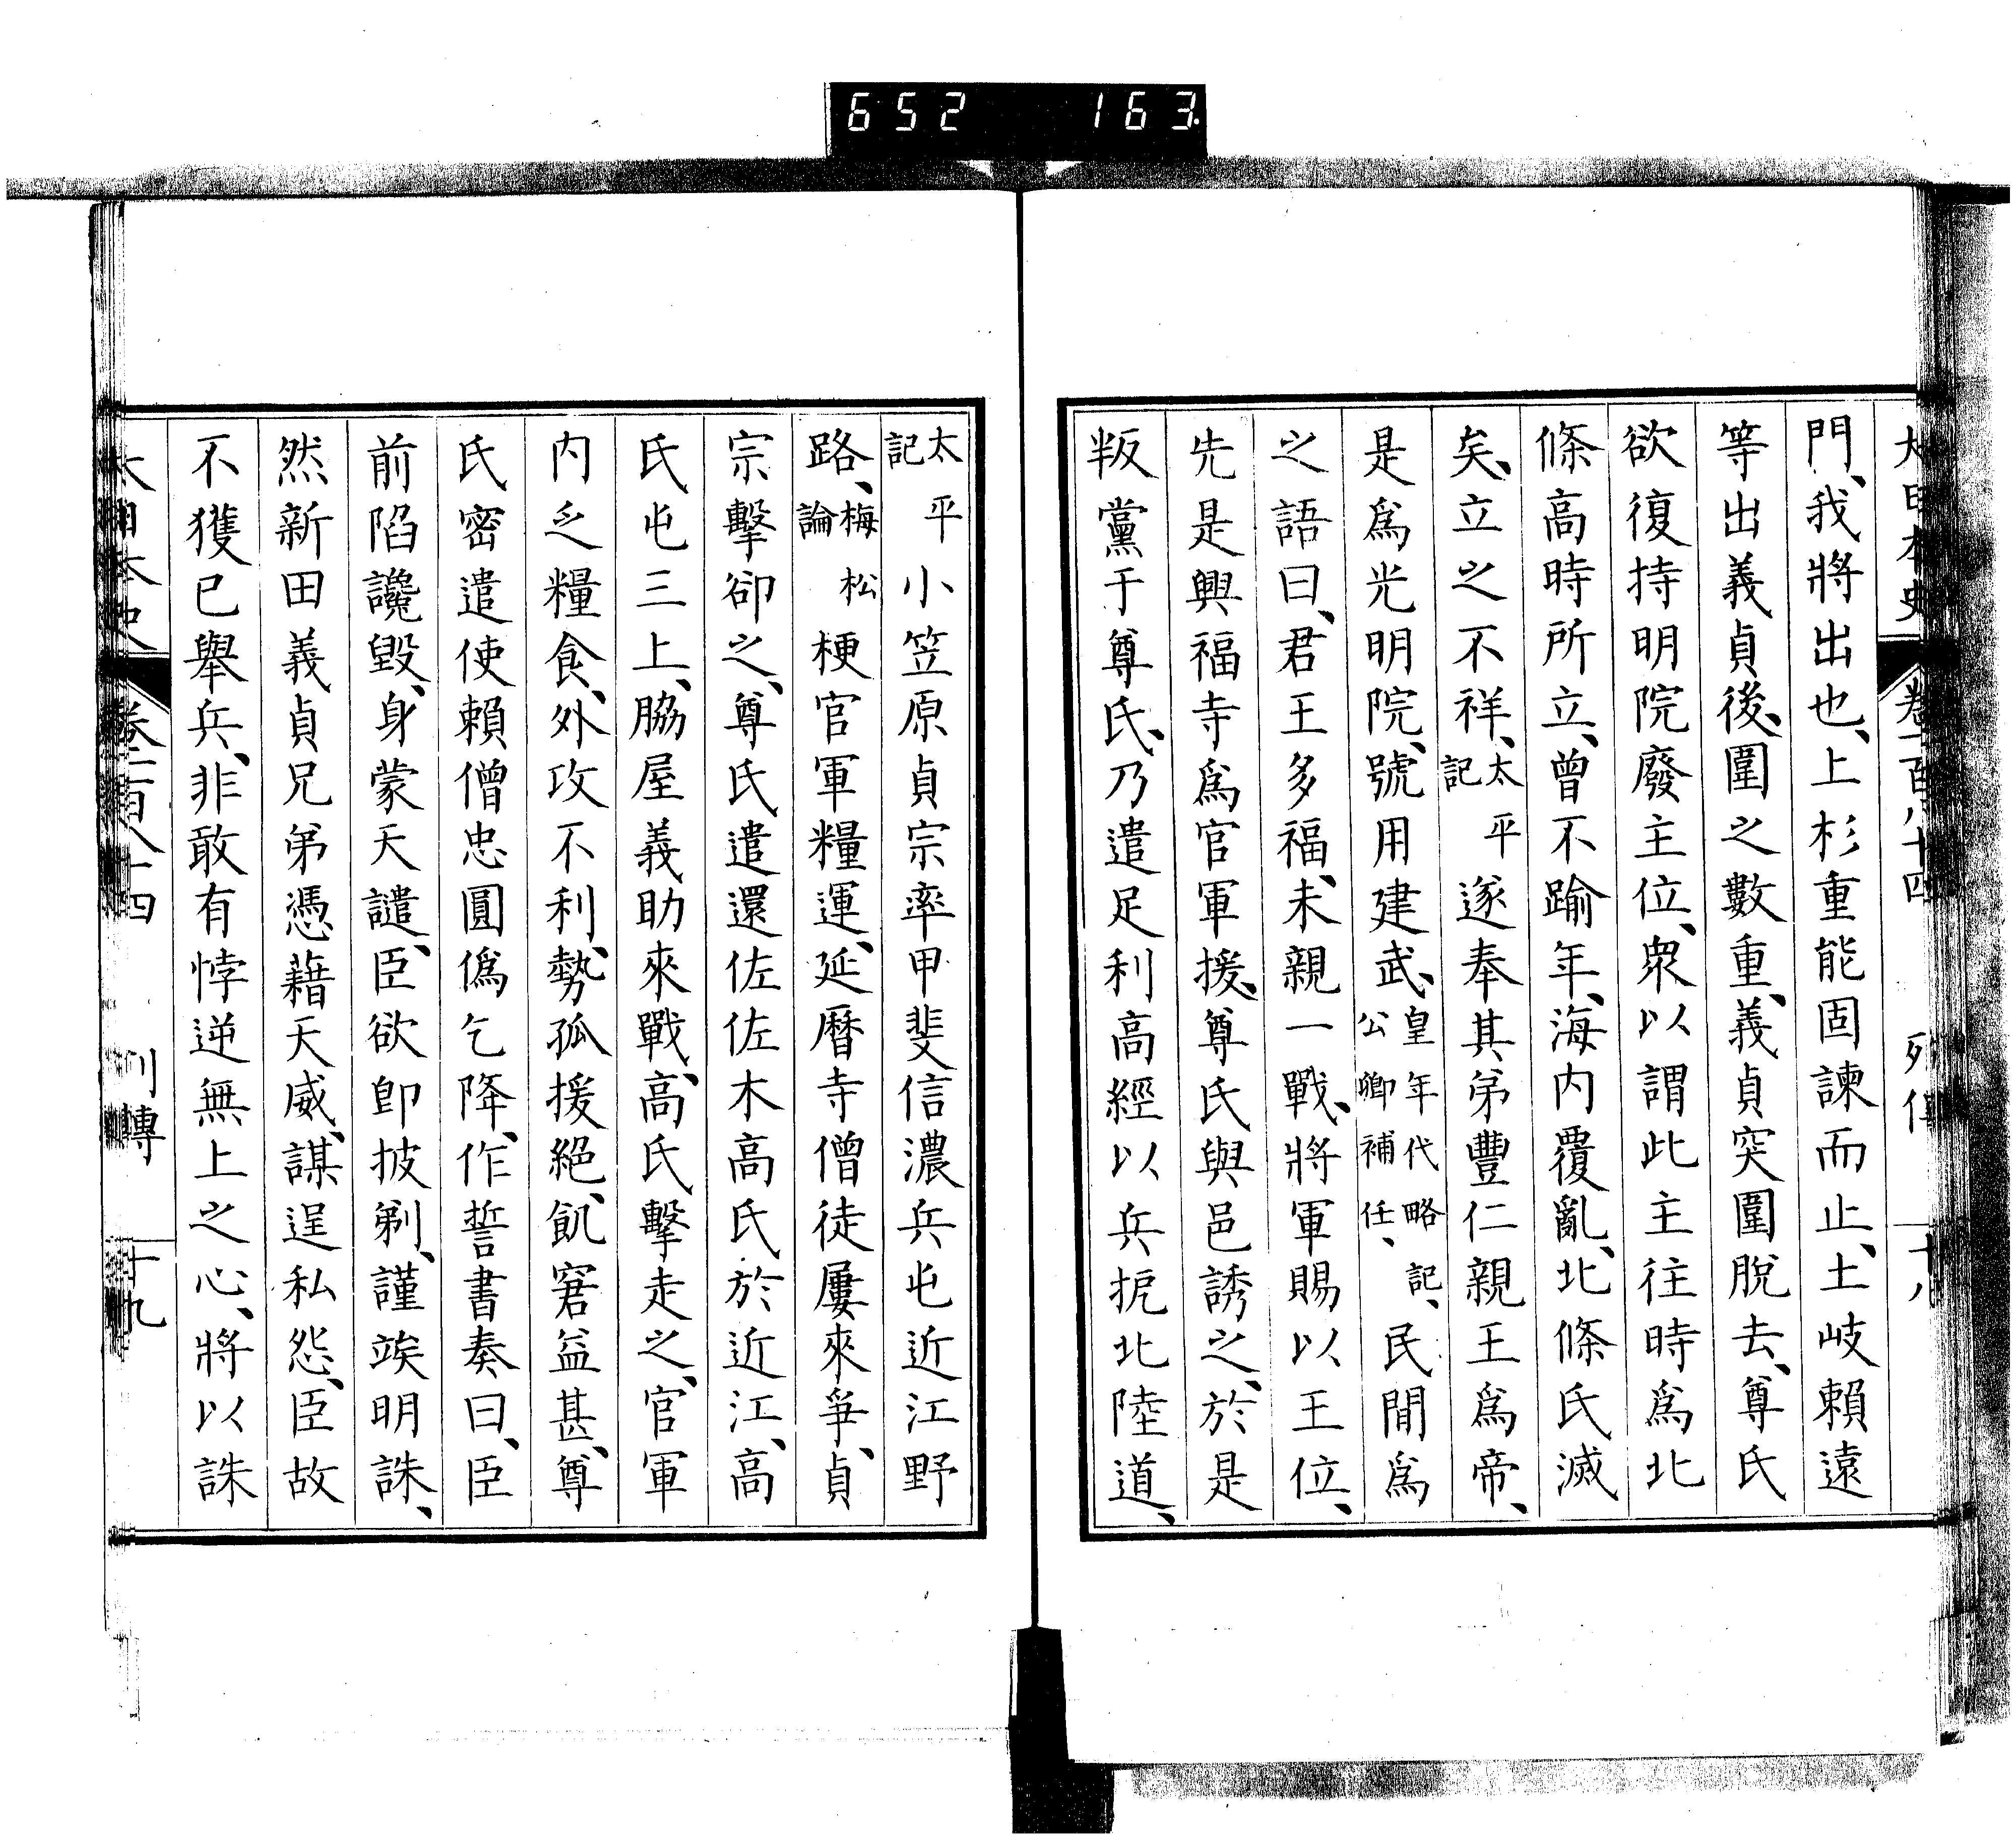 652 163
大日本史 卷一百八十四 列傳 十八
門、我將出也、上杉重能固諫而止、土岐賴遠
等出義貞後、圍之數重、義貞突圍脫去、尊氏
欲復持明院廢主位、衆以謂此主往時爲北
條高時所立、曾不踰年、海内覆亂、北條氏滅
矣、立之不祥、太平記遂奉其弟豐仁親王爲帝、
是爲光明院、號用建武、皇年代略記、公卿補任、民間爲
之語曰、君王多福、未親一戰、將軍賜以王位、
先是興福寺爲官軍援、尊氏與邑誘之、於是
叛黨于尊氏、乃遣足利高經以兵扼北陸道、
太平記小笠原貞宗率甲斐信濃兵屯近江野
路、梅松論梗官軍糧運、延曆寺僧徒屢來爭、貞
宗擊卻之、尊氏遣還佐佐木高氏於近江、高
氏屯三上、脇屋義助來戰、高氏擊走之、官軍
内乏糧食、外攻不利、勢孤援絕、飢窘益甚、尊
氏密遣使賴僧忠圓僞乞降、作誓書奏曰、臣
前陷讒毀、身蒙天譴、臣欲卽披剃、謹竢明誅、
然新田義貞兄弟憑藉天威、謀逞私怨、臣故
不獲已擧兵、非敢有悖逆無上之心、將以誅
大日本史 卷一百八十四 列傳 十九